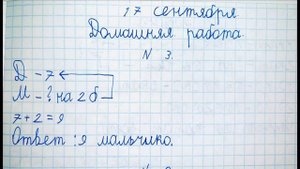 17 сентября.
Домашняя работа.
N 3.
Д – 7
М – ? на 2 б
7 + 2 = 9
Ответ : 9 мальчико.